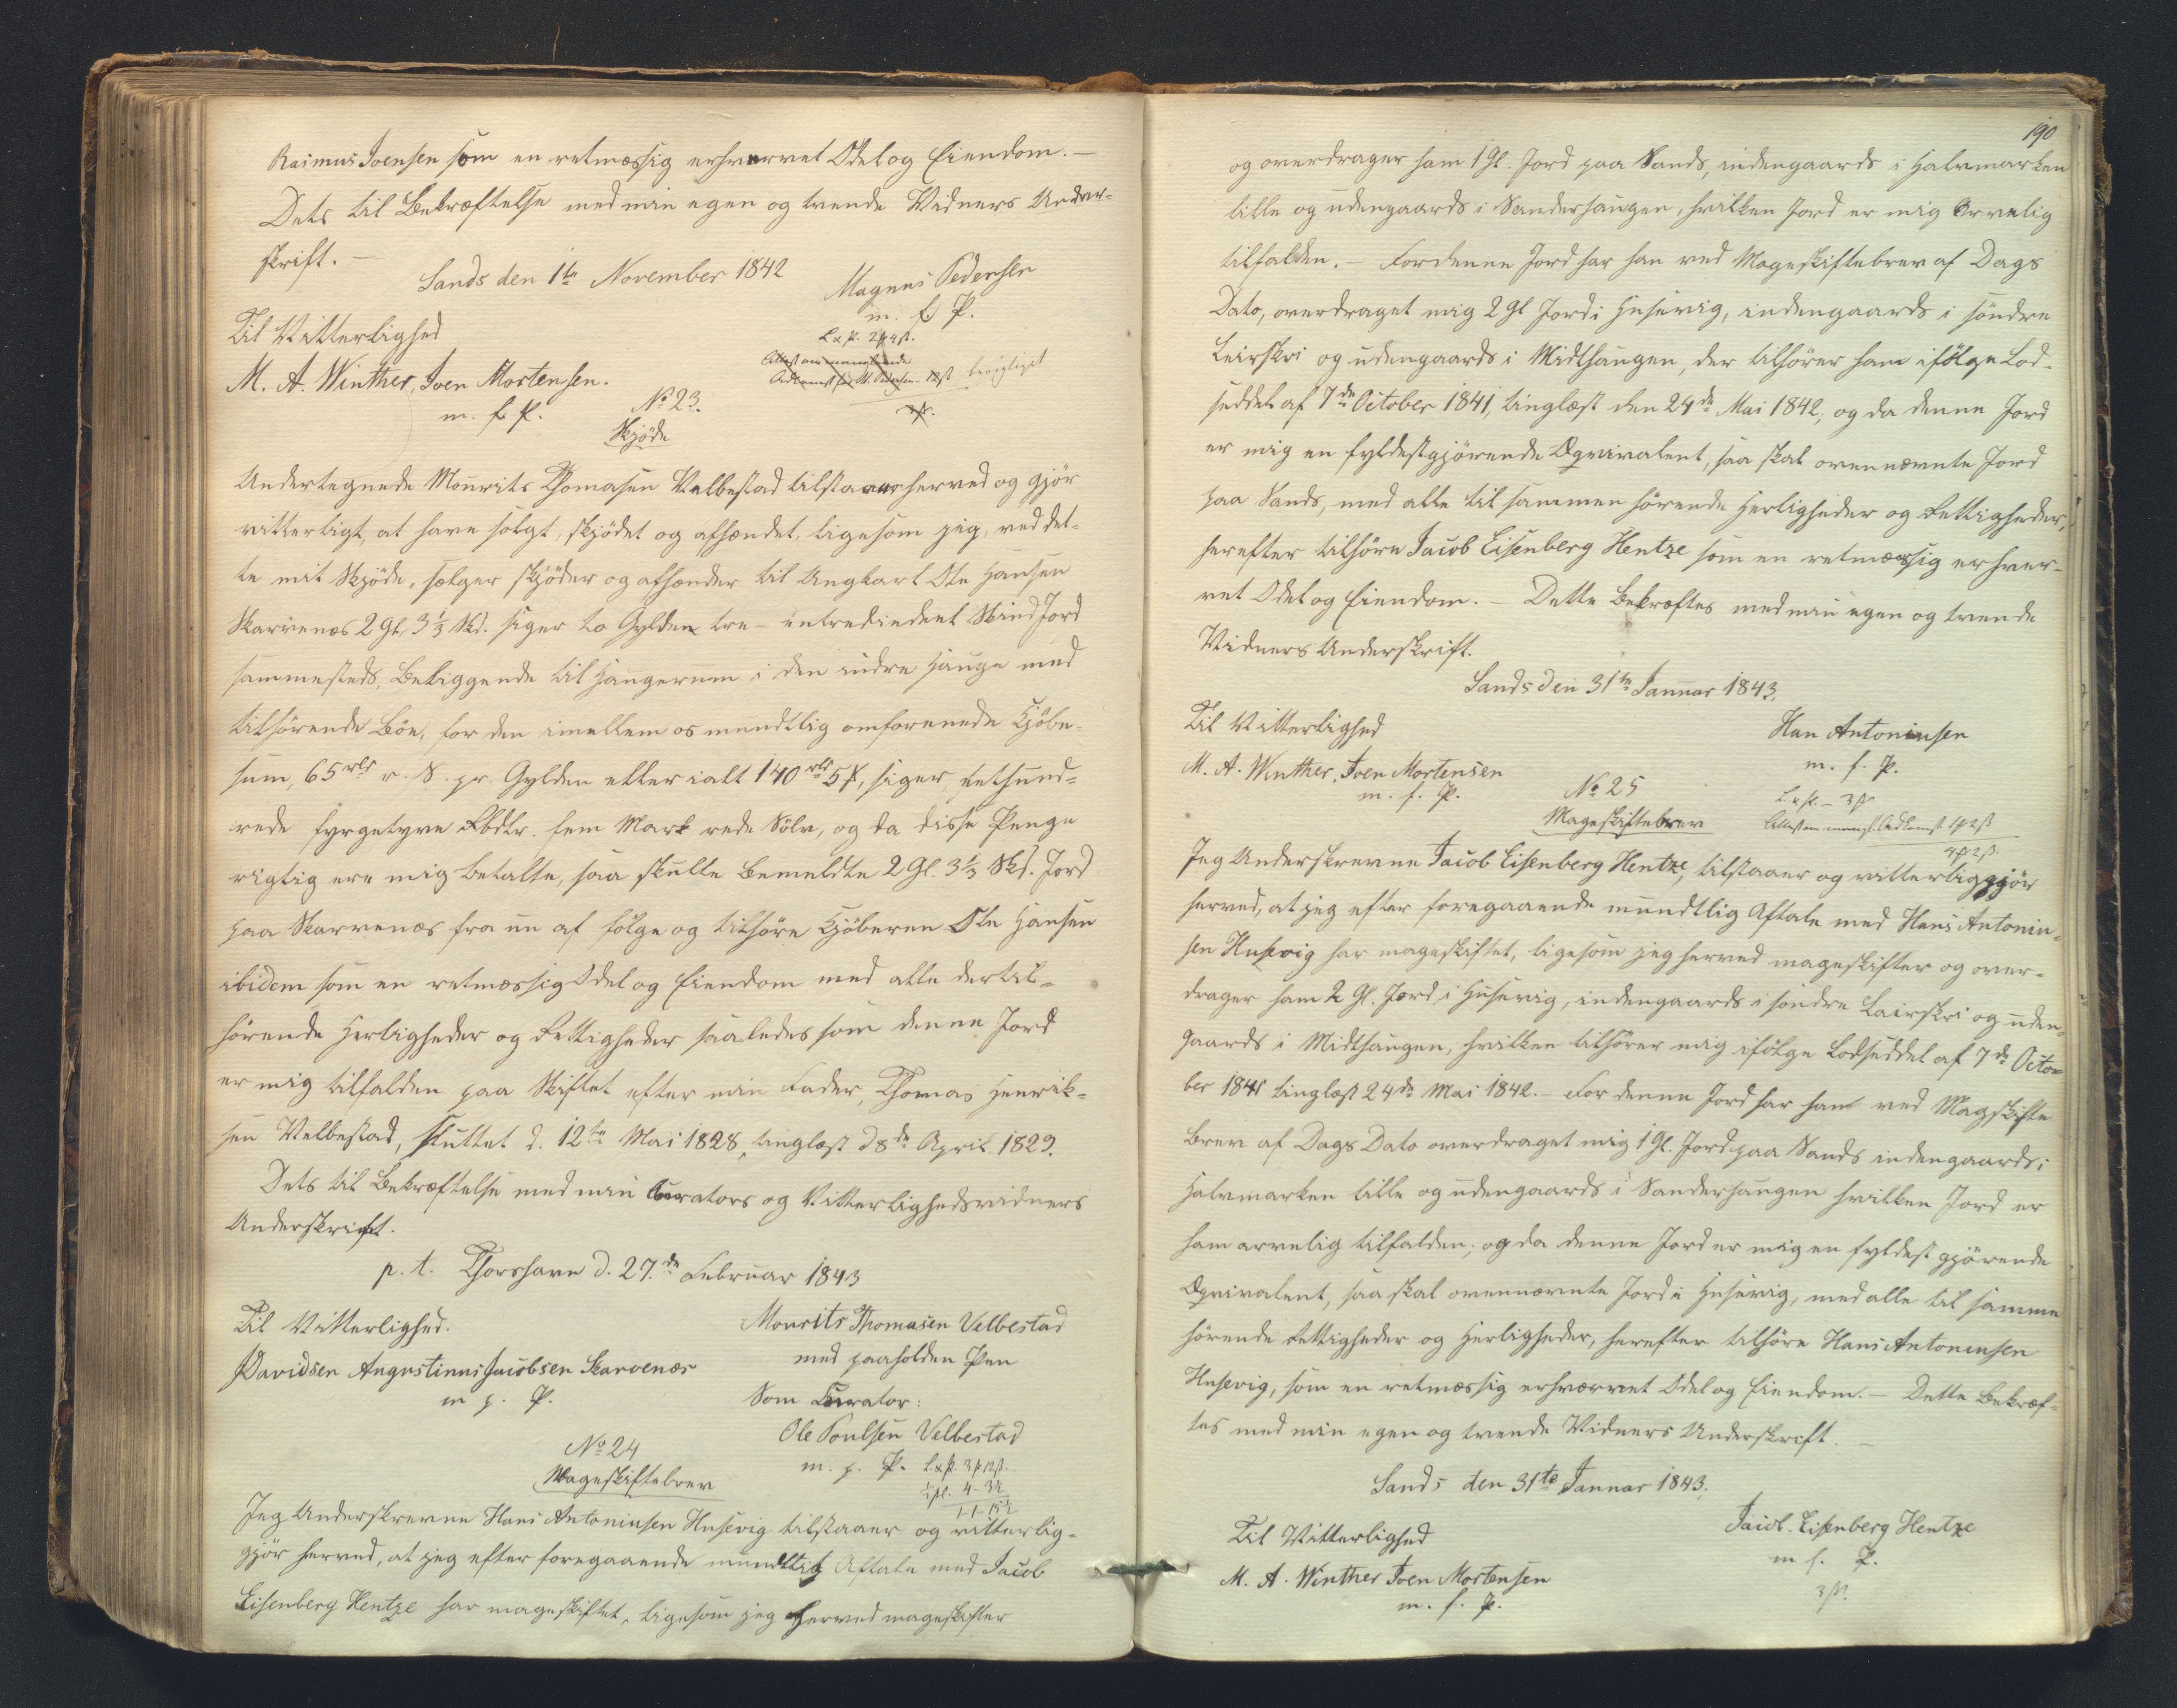 Rasmus Joensen som en retmæssig erhvervet Odel og Eiendom. —
Dets til Bekræftelse med min egen og tvende Vidners Under-
skrift. —
Sands den 1te November 1842
Magnus Pedersen
m. f. P.
Til Vitterlighed
L. & P. 2
M. A. Winther, Joen Mortensen.
m. f. P.
berigtiget
No 23.
Skjöde
Undertegnede Mourits Thomasen Velbestad tilstaaer herved og gjör
vitterligt, at have solgt, skjödet og afhændet, ligesom jeg, ved det-
te mit Skjöde, sælger skjöder og afhænder til Ungkarl Ole Hansen
Skarvenæs 2 Gl. 3 1/3 Skd. siger to Gylden tre- entrediedeel Skind Jord
sammesteds, Beliggende til Haugerum i den indre Hauge med
tilhörende Böe, for den imellem os mundtlig omforenede Kjöbe-
sum, 65 rbd r. S. pr. Gylden eller ialt 140 rbd 5 #, siger, eethund-
rede fyrgetyve Rbdlr. fem Mark rede Sölv, og da disse Penge
rigtig ere mig betalte, saa skulle bemeldte 2 Gl. 3 1/3 Skd. Jord
paa Skarvenæs fra nu af fölge og tilhöre Kjöberen Ole Hansen
ibidem som en retmæssig Odel og Eiendom med alle dertil-
hörende Herligheder og Rettigheder saaledes som denne Jord
er mig tilfalden paa Skiftet efter min Fader, Thomas Henrik-
sen Velbestad, sluttet d. 12te Mai 1828, tinglæst d 8de April 1829.
Dets til Bekræftelse med min Curators og Vitterlighedsvidners
Underskrift.
p. t. Thorshavn d. 27.de Februar 1843
Til Vitterlighed.
Mourits Thomasen Velbestad
med paaholden Pen
Davidsen Augustinus Jacobsen Skarvenæs
m. p. P.
Som Curator:
Ole Poulsen Velbestad
m. p. P. L. & P. 3 # 12 ß.
No 24
Mageskiftebrev
Jeg Underskrevne Hans Antoniusen Husevig tilstaaer og vitterlig-
gjör herved, at jeg efter foregaaende mundtlig Aftale med Jacob
Eisenberg Hentze har mageskiftet, ligesom jeg herved mageskifter
190
og overdrager ham 1 Gl. Jord paa Sands, indengaards i Halvmarken
lille og udengaards i Sanderhaugen, hvilken Jord er mig Arvelig
tilfalden. — For denne Jord har han ved Mageskiftebrev af Dags
Dato, overdraget mig 2 Gl Jord i Husevig, indengaards i söndre
Leirskri og udengaards i Midthaugen, der tilhörer ham ifölge Lod-
seddel af 7de October 1841, tinglæst den 24de Mai 1842, og da denne Jord
er mig en fyldestgjörende Æqvivalent, saa skal ovennævnte Jord
paa Sands, med alle til sammen hörende Herligheder og Rettigheder,
herefter tilhöre Jacob Eisenberg Hentze som en retmæssig erhver-
vet Odel og Eiendom. — Dette Bekræftes med min egen og tvende
Vidners Underskrift.
Sands den 31te Januar 1843.
Til Vitterlighed
Han Antoniusen
m. f. P.
M. A. Winther, Joen Mortensen
m. f. P.
No 25
Mageskiftebrev
L. & P. — 3 #
Attest om mangl. Adkomst 1 # 2 ß
4 # 2 ß.
Jeg Underskrevne Jacob Eisenberg Hentze, tilstaaer og vitterliggjör
herved, at jeg efter foregaaende mundtlig Aftale med Hans Antoniu-
sen Husevig har mageskiftet, ligesom jeg herved mageskifter og over-
drager ham 2 Gl. Jord i Husevig, indengaards i söndre Lairskri og uden
gaards i Midthaugen, hvilken tilhörer mig ifölge Lodseddel af 7de Octo-
ber 1841 tinglæst 24de Mai 1842. — For denne Jord har ham ved Magskifte
Brev af Dags Dato overdraget mig 1 Gl. Jord paa Sands indengaards i
Halvmarken lille og udengaards i Sanderhaugen hvilken Jord er
ham arvelig tilfalden; og da denne Jord er mig en fyldest gjörende
Æqvivalent, saa skal ovennævnte Jord i Husevig, med alle til samme
hörende Rettigheder og Herligheder, herefter tilhöre Hans Antoniusen
Husevig, som en retmæssig erhvervet Odel og Eiendom. — Dette Bekræf-
tes med min egen og tvende Vidners Underskrift. —
Sands den 31te Januar 1843.
Til Vitterlighed
Jacob Eisenberg Hentze
m f. P.
M. A. Winther Joen Mortensen
m. f. P.
3 #.